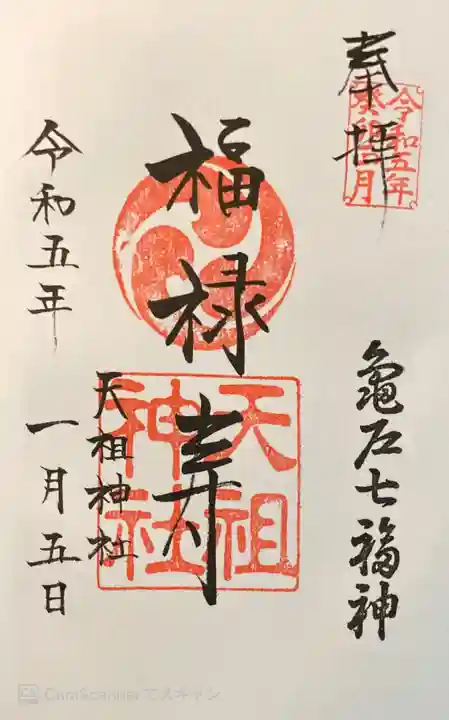 奉拝
令和五年
癸卯正月
亀戸七福神
福禄寿
天祖
神社
天祖神社
令和五年 一月五日
CS CamScanner でスキャン